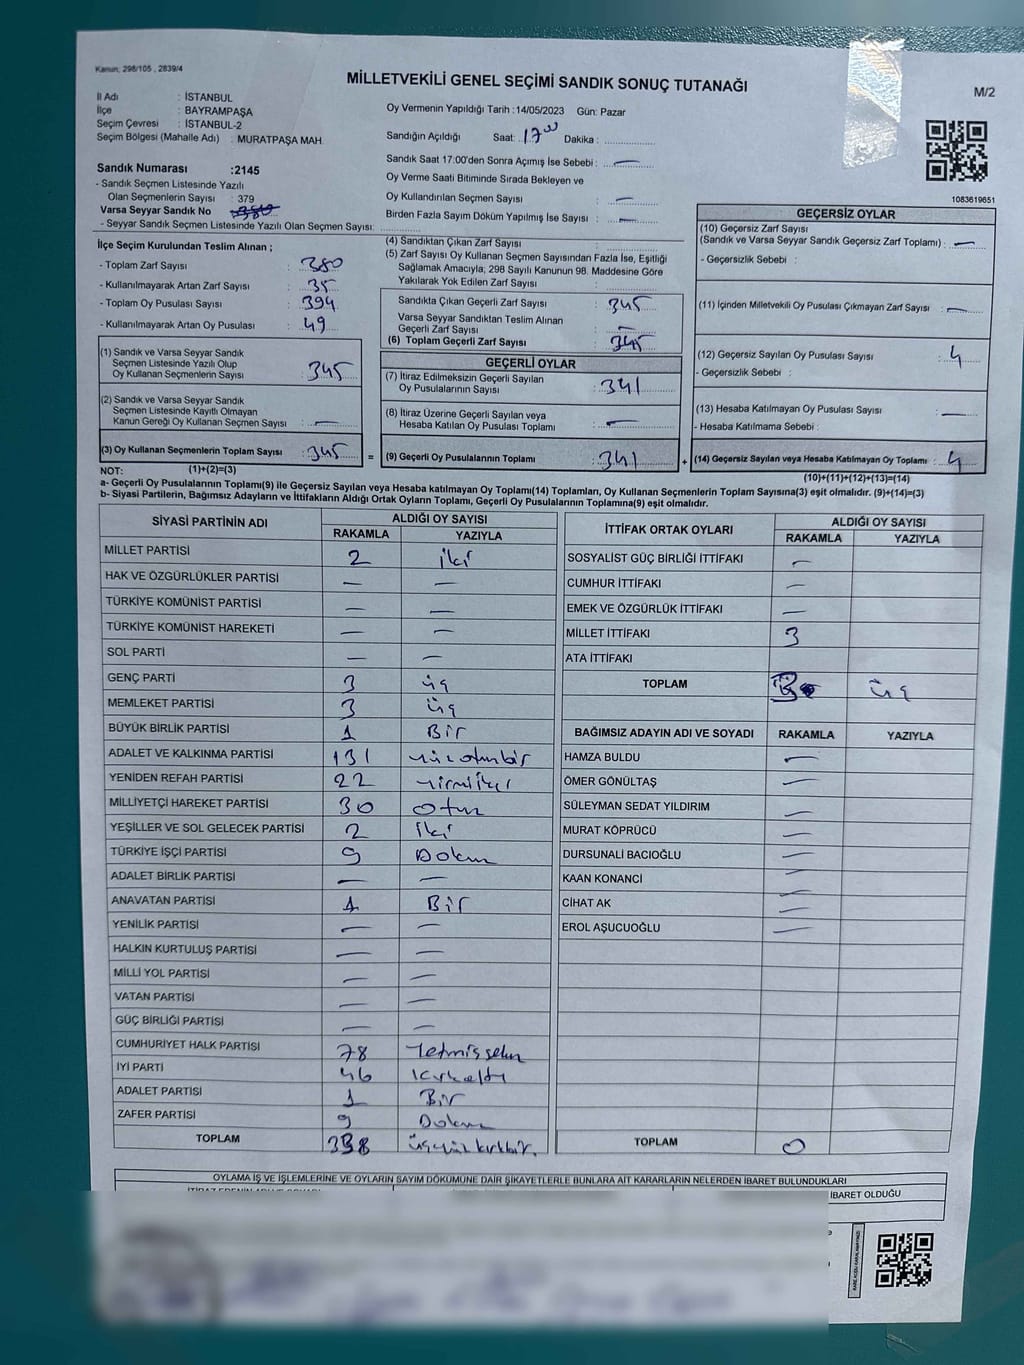 Kanun; 298/105 , 2839/4
MİLLETVEKİLİ GENEL SEÇİMİ SANDIK SONUÇ TUTANAĞI
M/2
İl Adı : İSTANBUL
İlçe : BAYRAMPAŞA
Seçim Çevresi : İSTANBUL-2
Seçim Bölgesi (Mahalle Adı) : MURATPAŞA MAH.
Sandık Numarası :2145
- Sandık Seçmen Listesinde Yazılı
Olan Seçmenlerin Sayısı : 379
Varsa Seyyar Sandık No
- Seyyar Sandık Seçmen Listesinde Yazılı Olan Seçmen Sayısı:
Oy Vermenin Yapıldığı Tarih :14/05/2023 Gün: Pazar
Sandığın Açıldığı Saat: 17 00 Dakika :
Sandık Saat 17:00'den Sonra Açımış İse Sebebi : —
Oy Verme Saati Bitiminde Sırada Bekleyen ve
Oy Kullandırılan Seçmen Sayısı : —
Birden Fazla Sayım Döküm Yapılmış İse Sayısı : —
1083619651
İlçe Seçim Kurulundan Teslim Alınan ;
- Toplam Zarf Sayısı : 380
- Kullanılmayarak Artan Zarf Sayısı : 35
- Toplam Oy Pusulası Sayısı : 394
- Kullanılmayarak Artan Oy Pusulası : 49
(1) Sandık ve Varsa Seyyar Sandık
Seçmen Listesinde Yazılı Olup
Oy Kullanan Seçmenlerin Sayısı : 345
(2) Sandık ve Varsa Seyyar Sandık
Seçmen Listesinde Kayıtlı Olmayan
Kanun Gereği Oy Kullanan Seçmen Sayısı : —
(3) Oy Kullanan Seçmenlerin Toplam Sayısı : 345 =
(4) Sandıktan Çıkan Zarf Sayısı :
(5) Zarf Sayısı Oy Kullanan Seçmen Sayısından Fazla İse, Eşitliği
Sağlamak Amacıyla; 298 Sayılı Kanunun 98. Maddesine Göre
Yakılarak Yok Edilen Zarf Sayısı :
Sandıkta Çıkan Geçerli Zarf Sayısı : 345
Varsa Seyyar Sandıktan Teslim Alınan
Geçerli Zarf Sayısı : —
(6) Toplam Geçerli Zarf Sayısı : 345
GEÇERLİ OYLAR
(7) İtiraz Edilmeksizin Geçerli Sayılan
Oy Pusulalarının Sayısı : 341
(8) İtiraz Üzerine Geçerli Sayılan veya
Hesaba Katılan Oy Pusulası Toplamı : —
(9) Geçerli Oy Pusulalarının Toplamı : 341 +
GEÇERSİZ OYLAR
(10) Geçersiz Zarf Sayısı
(Sandık ve Varsa Seyyar Sandık Geçersiz Zarf Toplamı) : —
- Geçersizlik Sebebi :
(11) İçinden Milletvekili Oy Pusulası Çıkmayan Zarf Sayısı : —
(12) Geçersiz Sayılan Oy Pusulası Sayısı : 4
- Geçersizlik Sebebi :
(13) Hesaba Katılmayan Oy Pusulası Sayısı : —
- Hesaba Katılmama Sebebi :
(14) Geçersiz Sayılan veya Hesaba Katılmayan Oy Toplamı : 4
NOT: (1)+(2)=(3) (10)+(11)+(12)+(13)=(14)
a- Geçerli Oy Pusulalarının Toplamı(9) ile Geçersiz Sayılan veya Hesaba katılmayan Oy Toplamı(14) Toplamları, Oy Kullanan Seçmenlerin Toplam Sayısına(3) eşit olmalıdır. (9)+(14)=(3)
b- Siyasi Partilerin, Bağımsız Adayların ve İttifakların Aldığı Ortak Oyların Toplamı, Geçerli Oy Pusulalarının Toplamına(9) eşit olmalıdır.
SİYASİ PARTİNİN ADI ALDIĞI OY SAYISI
RAKAMLA YAZIYLA
MİLLET PARTİSİ 2 iki
HAK VE ÖZGÜRLÜKLER PARTİSİ — —
TÜRKİYE KOMÜNİST PARTİSİ — —
TÜRKİYE KOMÜNİST HAREKETİ — —
SOL PARTİ — —
GENÇ PARTİ 3 üç
MEMLEKET PARTİSİ 3 üç
BÜYÜK BİRLİK PARTİSİ 1 Bir
ADALET VE KALKINMA PARTİSİ 131 yüzotuzbir
YENİDEN REFAH PARTİSİ 22 yirmiiki
MİLLİYETÇİ HAREKET PARTİSİ 30 Otuz
YEŞİLLER VE SOL GELECEK PARTİSİ 2 İki
TÜRKİYE İŞÇİ PARTİSİ 9 Dokuz
ADALET BİRLİK PARTİSİ — —
ANAVATAN PARTİSİ 1 Bir
YENİLİK PARTİSİ — —
HALKIN KURTULUŞ PARTİSİ — —
MİLLİ YOL PARTİSİ — —
VATAN PARTİSİ — —
GÜÇ BİRLİĞİ PARTİSİ — —
CUMHURİYET HALK PARTİSİ 78 Yetmişsekiz
İYİ PARTİ 46 Kırkaltı
ADALET PARTİSİ 1 Bir
ZAFER PARTİSİ 9 Dokuz
TOPLAM 338 üçyüzkırkbir.
İTTİFAK ORTAK OYLARI ALDIĞI OY SAYISI
RAKAMLA YAZIYLA
SOSYALİST GÜÇ BİRLİĞİ İTTİFAKI —
CUMHUR İTTİFAKI —
EMEK VE ÖZGÜRLÜK İTTİFAKI —
MİLLET İTTİFAKI 3
ATA İTTİFAKI
TOPLAM üç
BAĞIMSIZ ADAYIN ADI VE SOYADI RAKAMLA YAZIYLA
HAMZA BULDU —
ÖMER GÖNÜLTAŞ —
SÜLEYMAN SEDAT YILDIRIM —
MURAT KÖPRÜCÜ —
DURSUNALİ BACIOĞLU —
KAAN KONANCİ —
CİHAT AK —
EROL AŞUCUOĞLU —
TOPLAM 0
OYLAMA İŞ VE İŞLEMLERİNE VE OYLARIN SAYIM DÖKÜMÜNE DAİR ŞİKAYETLERLE BUNLARA AİT KARARLARIN NELERDEN İBARET BULUNDUKLARI
İBARET OLDUĞU